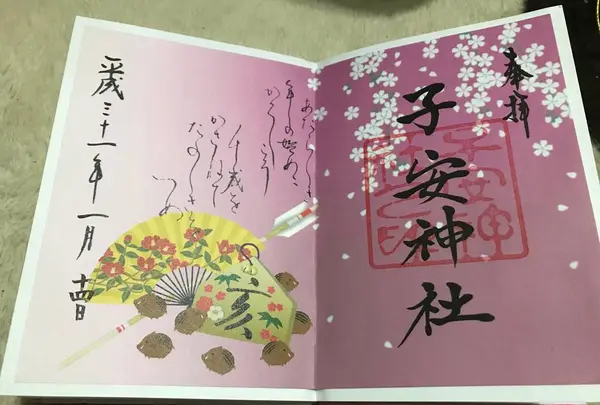 奉拝
子安神社
子安神
社之印
あたらしき
年の始めに
かくしこそ
千歳を
かねて
たのしきを
つめ
亥
平成三十一年一月十四日